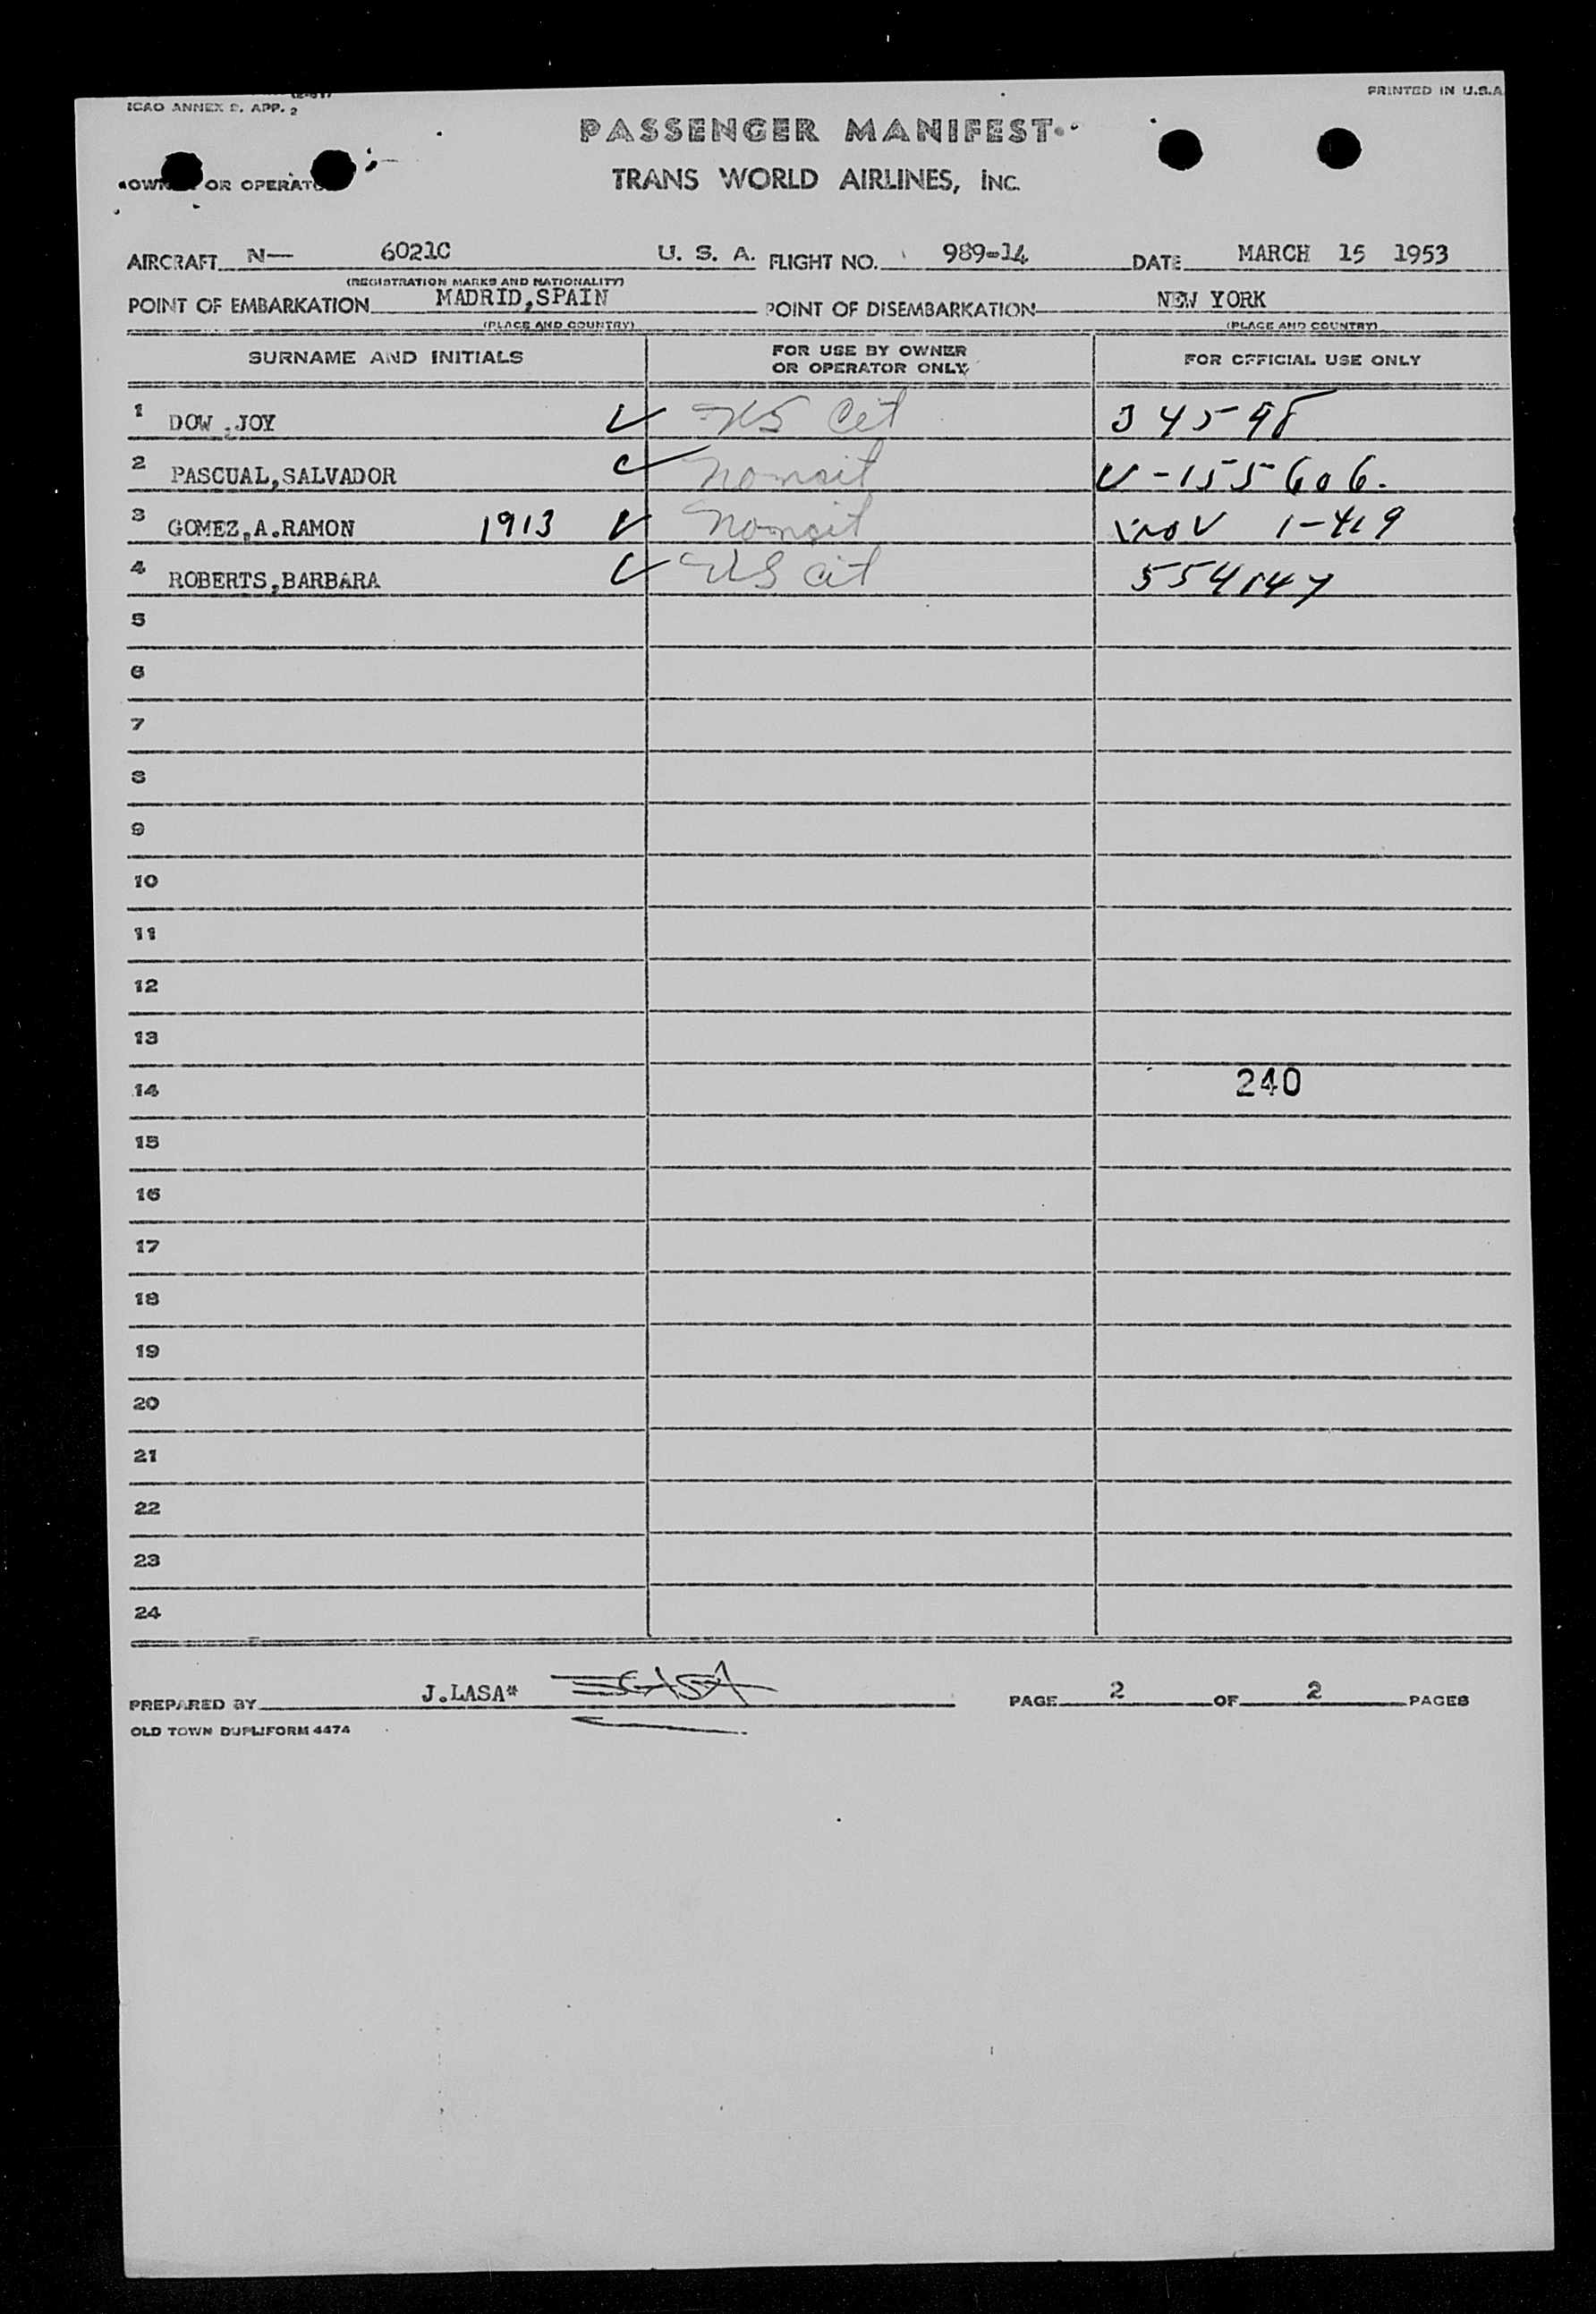 ICAO ANNEX 9, APP. 2
PRINTED IN U.S.A.
PASSENGER MANIFEST
OR OPERATOR
TRANS WORLD AIRLINES, INC.
AIRCRAFT N— 6021C U. S. A. FLIGHT NO. 989-14 DATE MARCH 15 1953
(REGISTRATION MARKS AND NATIONALITY)
POINT OF EMBARKATION MADRID,SPAIN POINT OF DISEMBARKATION NEW YORK
(PLACE AND COUNTRY) (PLACE AND COUNTRY)
SURNAME AND INITIALS FOR USE BY OWNER OR OPERATOR ONLY FOR OFFICIAL USE ONLY
1 DOW ,JOY ✓ US Cit 34598
2 PASCUAL,SALVADOR ✓ V-155606.
3 GOMEZ,A.RAMON 1913 ✓ 1-419
4 ROBERTS,BARBARA ✓ US cit 554147
5
6
7
8
9
10
11
12
13
14 240
15
16
17
18
19
20
21
22
23
24
PREPARED BY J.LASA* PAGE 2 OF 2 PAGES
OLD TOWN DUPLIFORM 4474